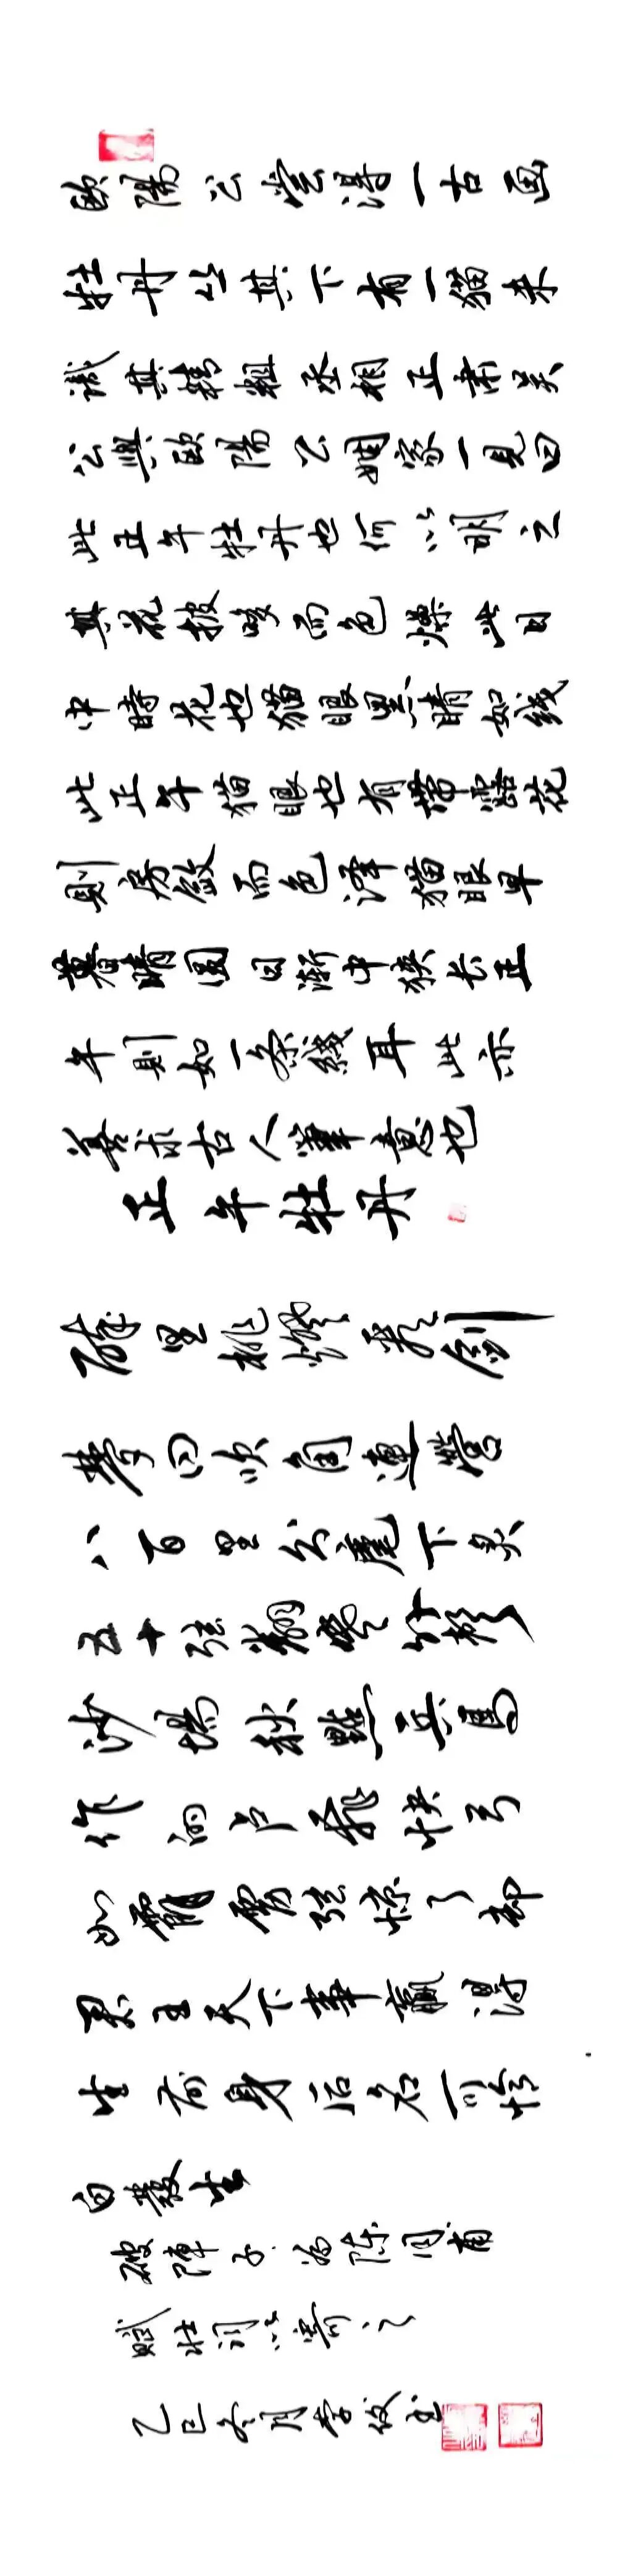 欧陽公嘗得一古画
牡丹丛其下有一猫未
識其精粗丞相正肃吴
公與欧陽公姻家一見曰
此正午牡丹也何以明之
其花披哆而色燥此日
中時花也猫眼黑睛如线
此正午猫眼也有帶露花
則房斂而色泽猫眼早
暮睛圆日渐中狭长正
午則如一条线耳此亦
善求古人筆意也
正午牡丹
醉里挑灯看剑
梦回吹角連营
八百里分麾下炙
五十弦翻塞外声
沙場秋點兵馬
作的卢飛快弓
如霹雳弦惊了却
君王天下事贏得
生前身后名可怜
白發生
破陣子为陈同甫
赋壮词以寄之
乙巳冬月李俊書